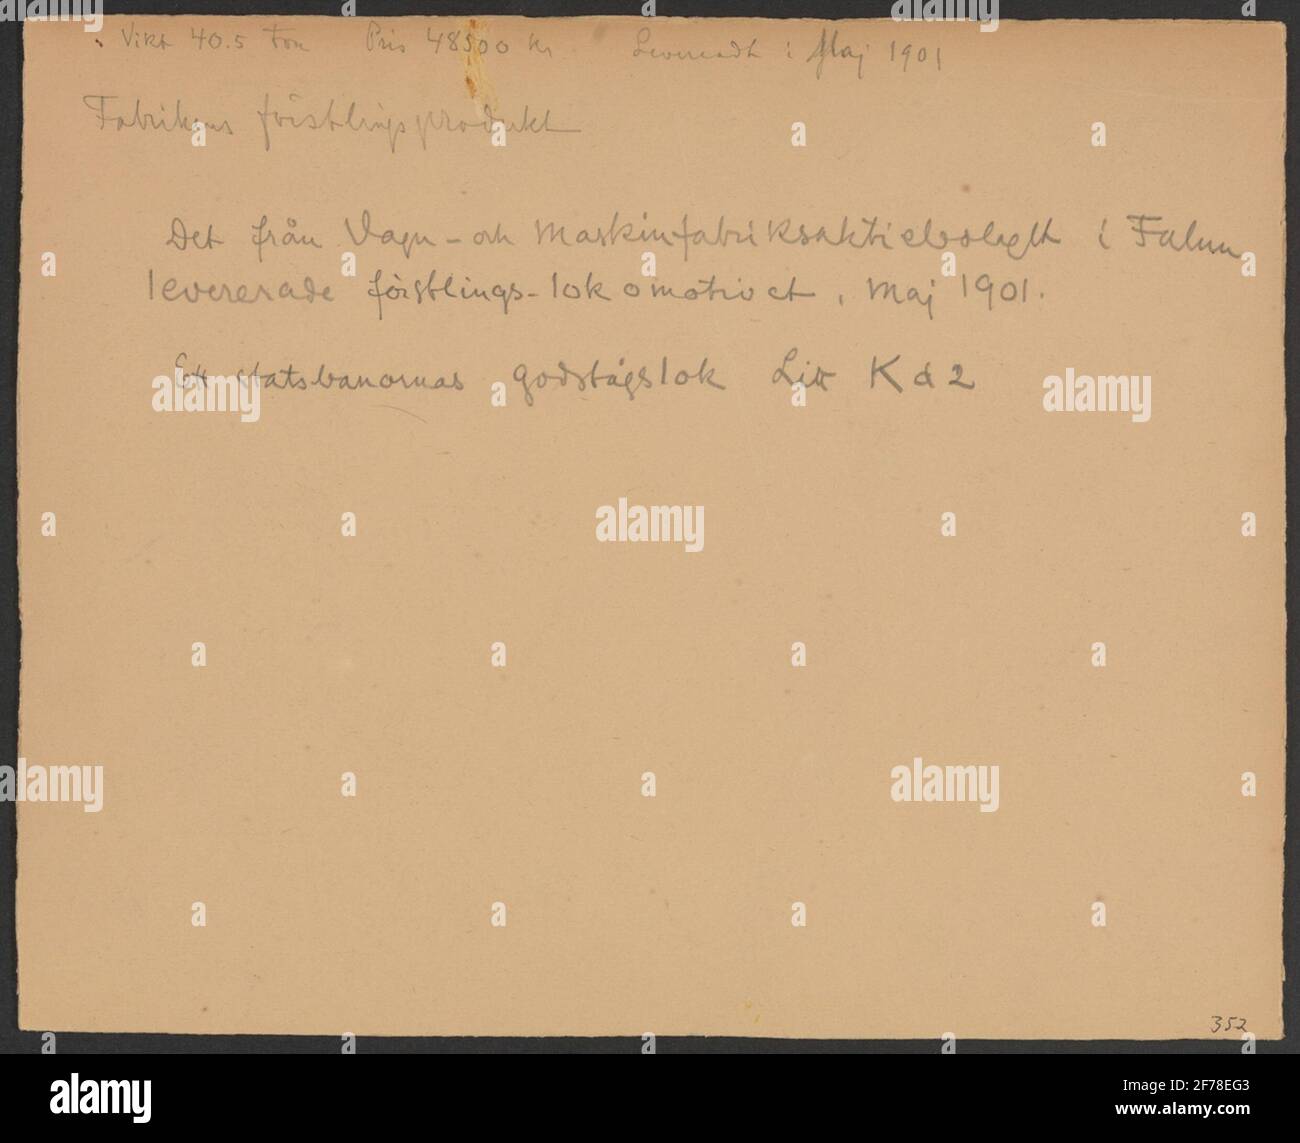 Vikt 40.5 ton Pris 48500 kr Levereradt i Maj 1901
Fabrikens förstlingsprodukt
Det från Vagn- och Maskinfabriksaktiebolaget i Falun
levererade förstlings-lokomotivet, maj 1901.
Ett statsbanornas godstågslok Litt Kd2
352
alamy
Image ID: 2F78EG3
www.alamy.com